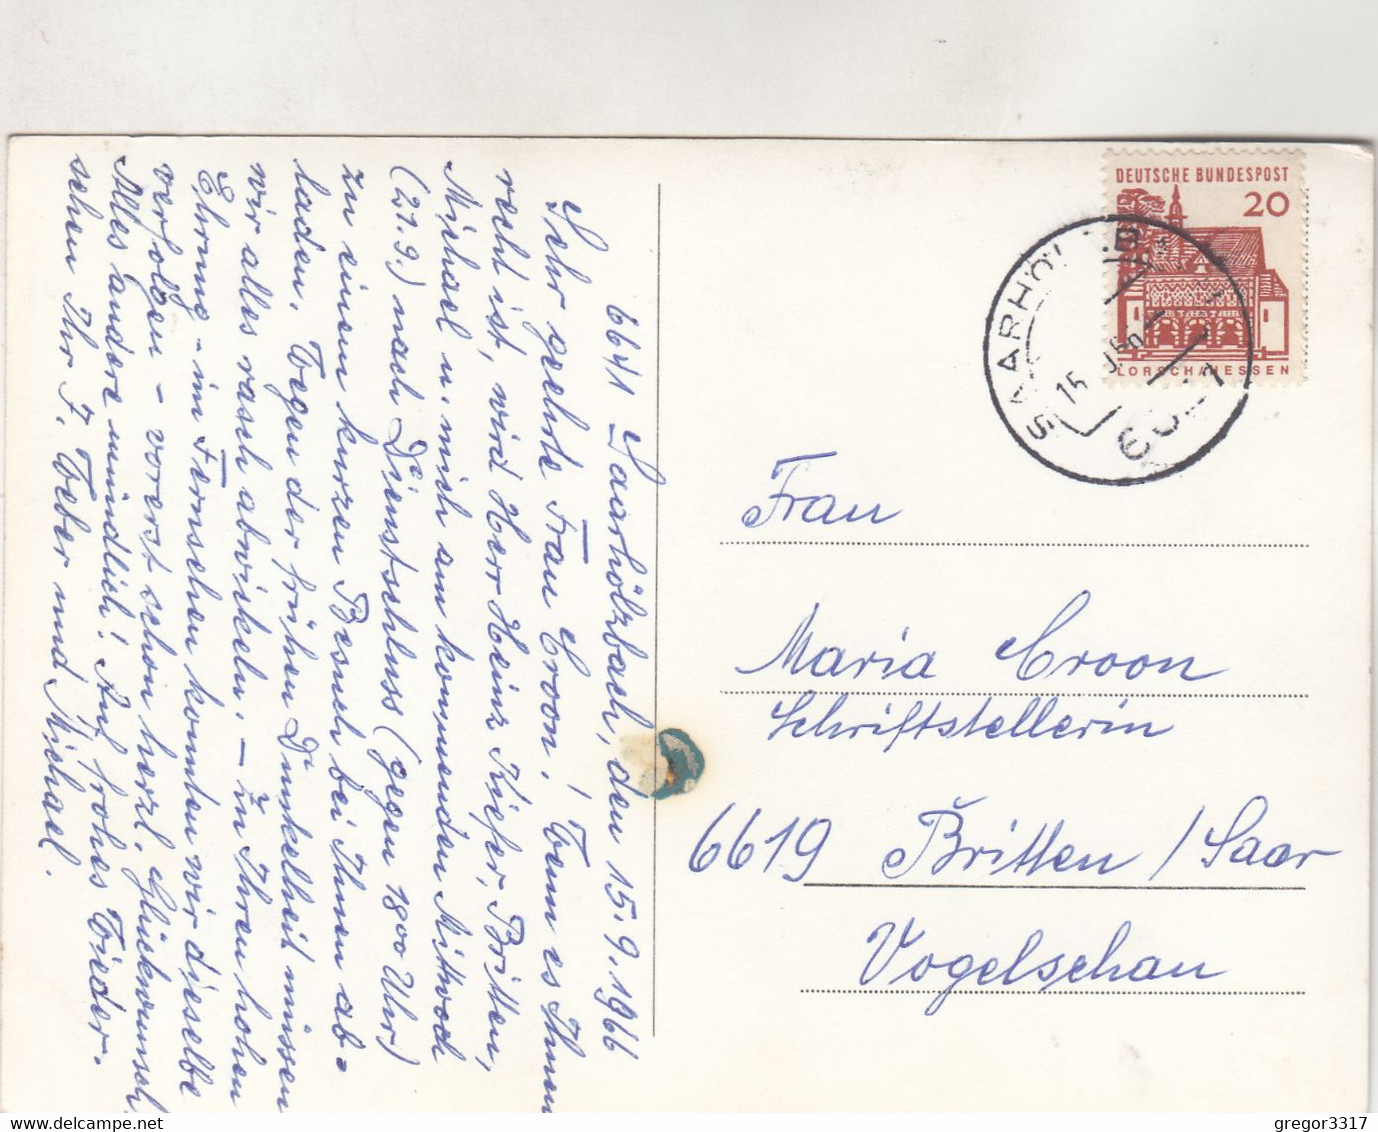 6641 Saarhölzbach, den 15.9.1966
Sehr geehrte Frau Croon! Wenn es Ihnen
recht ist, wird Herr Heinz Kiefer, Britten,
Michael u. mich am kommenden Mittwoch
(21.9.) nach Dienstschluss (gegen 1800 Uhr)
zu einem kurzen Besuch bei Ihnen ab-
laden. Wegen der frühen Dunkelheit müssen
wir alles rasch abwickeln. – Zu Ihren hohen
Ehrung – im Fernsehen konnten wir dieselbe
verfolgen – vorerst schon herzl. Glückwunsch.
Alles andere mündlich! Auf frohes Wieder-
sehen Ihr F. Weber und Michael.
DEUTSCHE BUNDESPOST
20
LORSCH/HESSEN
SAARHÖLZB
15
Frau
Maria Croon
Schriftstellerin
6619 Britten / Saar
Vogelschau
www.delcampe.net
gregor3317